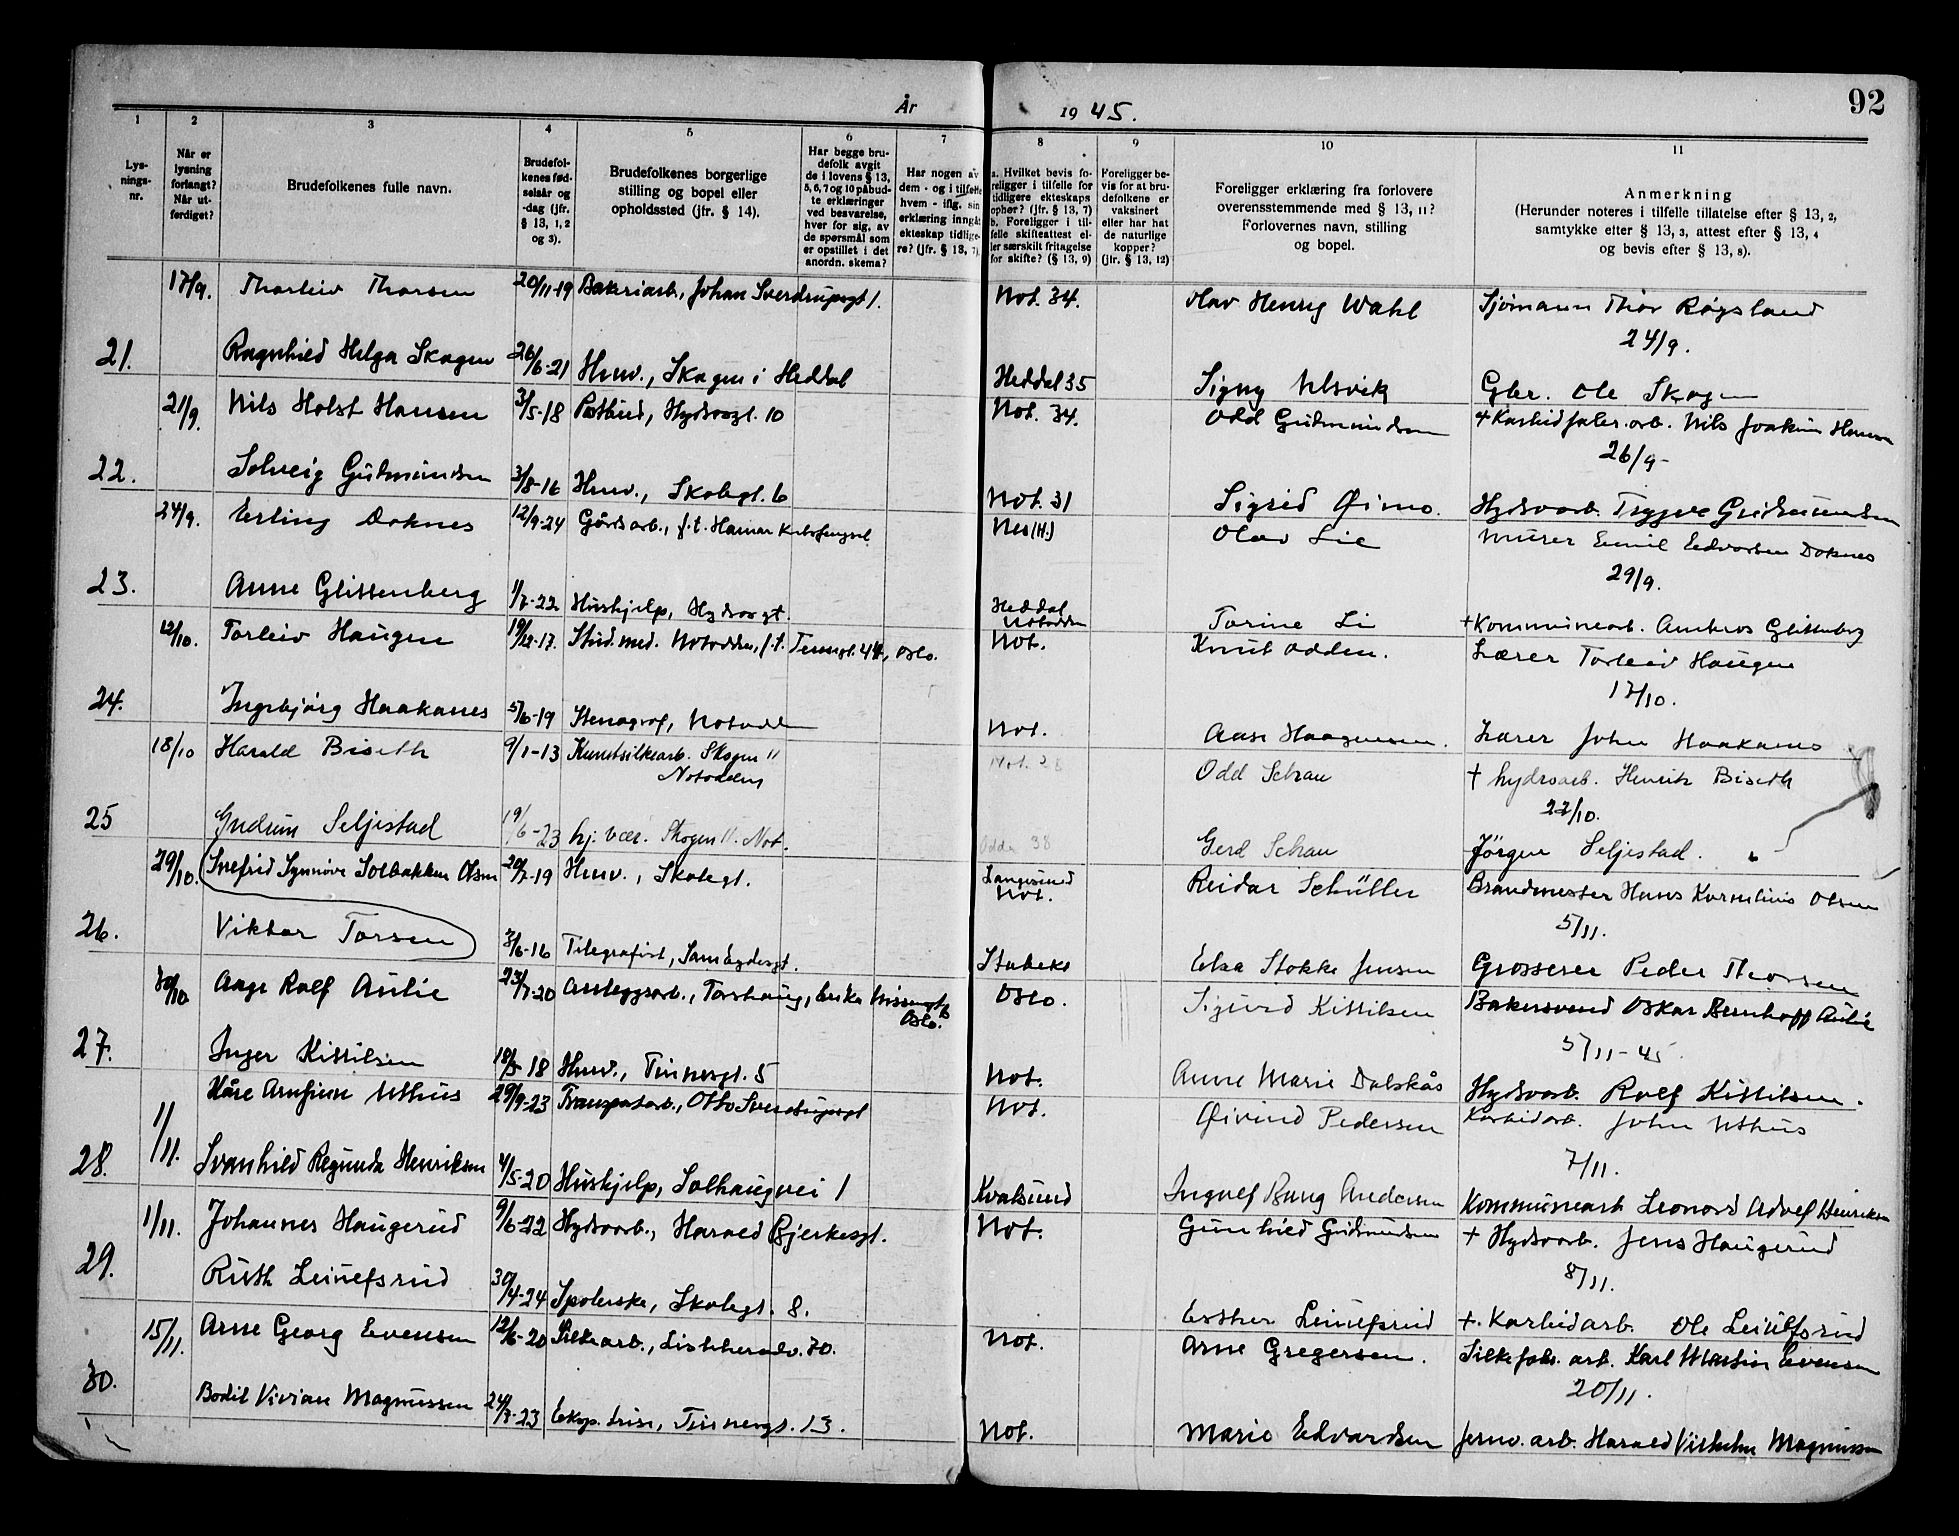 92
År 1945.
1 2 3 4 5 6 7 8 9 10 11
Lysnings-nr.
Når er lysning forlangt? Når utferdiget?
Brudefolkenes fulle navn.
Brudefolkenes fødselsår og -dag (jfr. § 13, 1, 2 og 3).
Brudefolkenes borgerlige stilling og bopel eller opholdssted (jfr. § 14).
Har begge brudefolk avgit de i lovens § 13, 5, 6, 7 og 10 påbudte erklæringer ved besvarelse, hver for sig, av de spørsmål som er opstillet i det anordn. skema?
Har nogen av dem - og i tilfelle hvem - iflg. sin erklæring inngått ekteskap tidligere? (jfr. § 13, 7).
a. Hvilket bevis foreligger i tilfelle for tidligere ekteskaps ophør? (jfr. § 13, 7) b. Foreligger i tilfelle skifteattest eller særskilt fritagelse for skifte? (§ 13, 9)
Foreligger bevis for at brudefolkene er vaksinert eller har hat de naturlige kopper? (jfr. § 13, 12)
Foreligger erklæring fra forlovere overensstemmende med § 13, 11? Forlovernes navn, stilling og bopel.
Anmerkning (Herunder noteres i tilfelle tillatelse efter § 13, 2, samtykke efter § 13, 3, attest efter § 13, 4 og bevis efter § 13, 8).
17/9. Thorleiv Thorsen 20/11-19 Bakeriarb., Johan Sverdrupsgt 1. Not. 34. Olav Henry Wahl Sjømann Thor Røgsland
24/9.
21. Ragnhild Helga Skogen 26/6-21 Husv., Skogen i Heddal Heddal 35 Signy Ulsvik Gbr. Ole Skogen
21/9. Nils Holst Hansen 3/5-18 Postbud, Hydrosgt. 10 Not. 34. Odd Gudmundsen + Karbidfabr.arb. Nils Joakim Hansen
26/9-
22. Solveig Gudmundsen 3/8-16 Husv., Skolegt. 6 Not. 31 Sigrid Øimo. Hydroarb. Trygve Gudmundsen
24/9. Erling Doknes 12/9-24 Gårdsarb., f.t. Hamar Kretsfengsel Nes (H.) Olav Lie Murer Emil Edvardsen Doknes
29/9.
23. Anne Glittenberg 1/7-22 Hushjelp, Hydrosgt. Heddal Notodden Torine Li + Kommunearb. Anders Glittenberg
12/10. Torleiv Haugen 19/12-17. Stud.med. Notodden, f.t. 44, Oslo. Not. Knut Odden. Lærer Torleiv Haugen
17/10.
24. Ingebjørg Haakanes 5/6-19 Stenograf, Notodden Not. Aase Haagensen. Lærer John Haakanes
18/10 Harald Biseth 9/1-13 Kunstsilkearb. Skogen 11 Notodden Not. 28 Odd Schau + hydroarb. Henrik Biseth
22/10.
25 Gudrun Seljestad 19/6-23 hj. vær. Skogen 11. Not. Odda 38 Gerd Schau Jörgen Seljestad.
29/10. Snefrid Synnøve Solbakken Olsen 20/7-19 Husv., Skolegt. Langesund Not. Reidar Schüller Brandmester Hans Kornelius Olsen
5/11.
26. Viktor Torsen 3/6-16 Telegrafist, Sam Eydesgt. Stabekk Elsa Stokke Jensen Grosserer Peder Thorsen
30/10 Aage Rolf Aulie 23/7-20 Anleggsarb., Torshaug, Erika Nissensgt. Oslo. Oslo. Sigurd Kittilsen Bakersvend Oskar Bernhoff Aulie
5/11-45
27. Inger Kittilsen 18/3-18 Husv., Tinnesgt. 5 Not. Anne Marie Dalskås Hydroarb. Rolf Kittilsen.
1/11. Kåre Arnfinn Uthus 29/9-23 Transportarb., Otto Sverdrupsgt Not. Øivind Pedersen Karbidarb. John Uthus
7/11.
28. Svanhild Regunda Henriksen 4/5-20 Hushjelp, Solhaugvei 1 Kvalsund Ingolf Bang Andersen Kommunearb Leonard Adolf Henriksen
1/11. Johannes Haugerud 9/6-22 Hydroarb., Harald Bjerkesgt. Not. Gunhild Gudmundsen + Hydroarb. Jens Haugerud
8/11.
29. Ruth Leinefsrud 30/4-24 Spolerske, Skolegt. 8. Esther Leinefsrud +. Karbidarb. Ole Leinefsrud
15/11. Arne Georg Evensen 12/6-20 Silkearb., 70. Not. Arne Gregersen. Silkefabr. arb. Karl Martin Evensen
20/11.
30. Bodil Vivian Magnussen 24/3-23 Eksp. trise, Tinnesgt. 13. Not. Marie Edvardsen Jernv. arb. Harald Vilhelm Magnussen